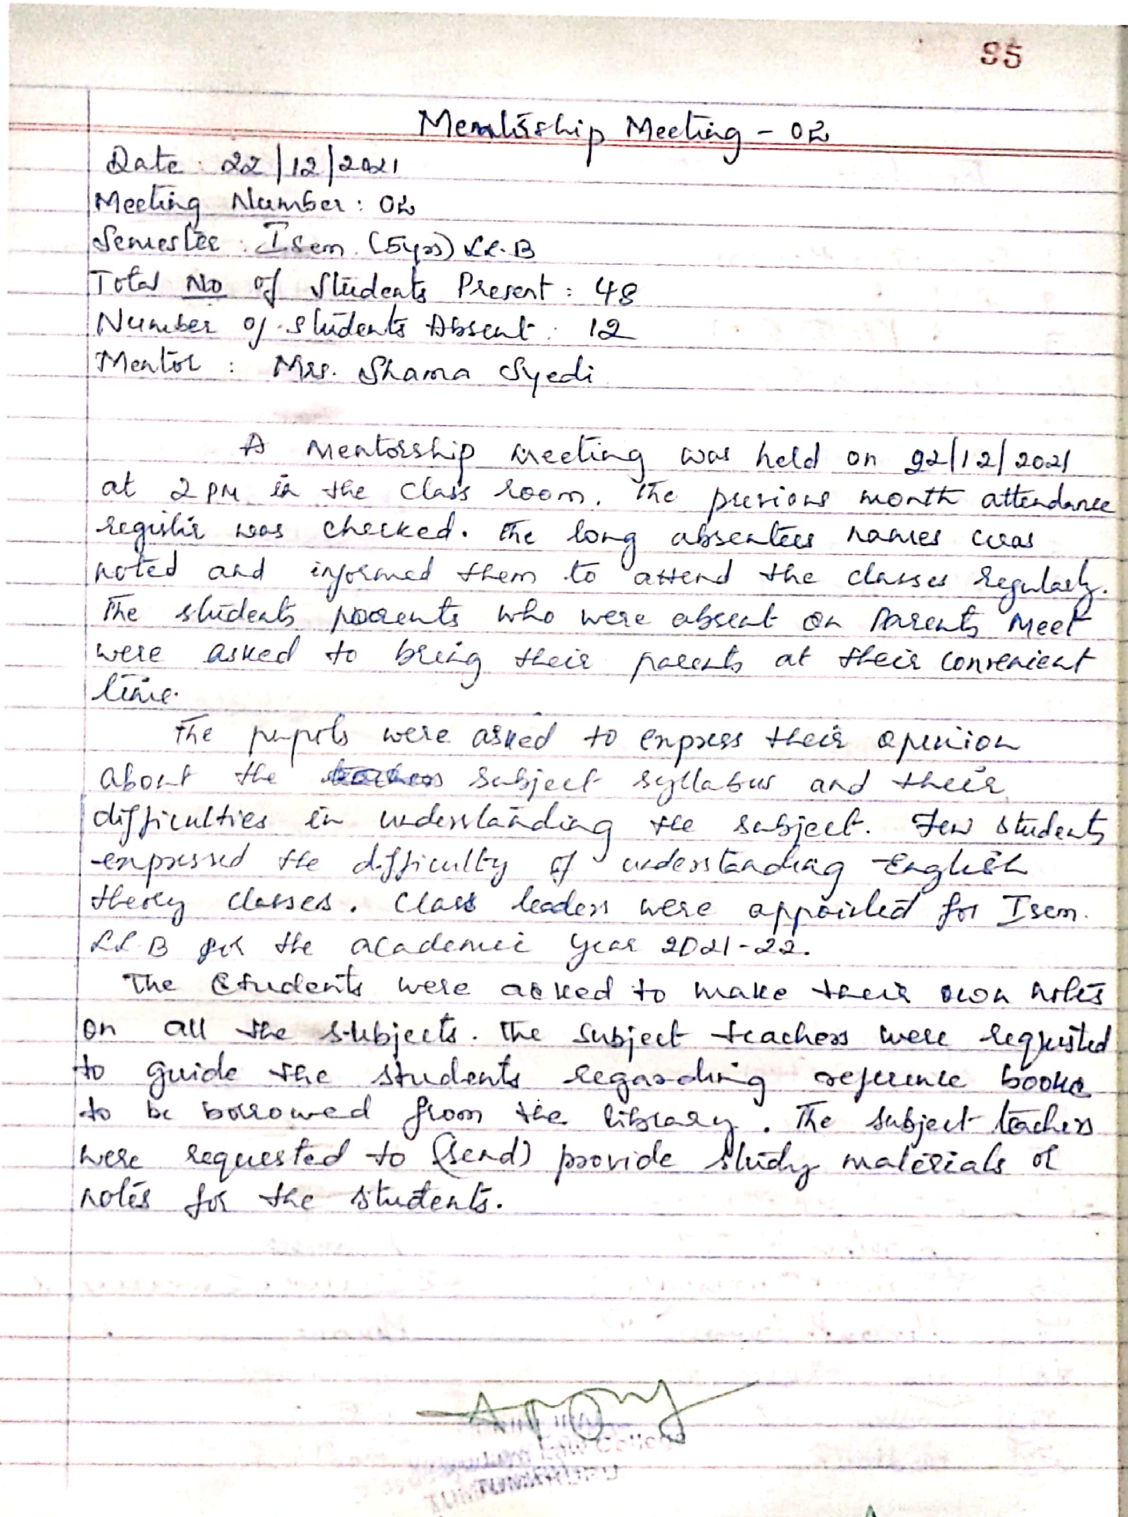 95
Mentorship Meeting - 02
Date : 22/12/2021
Meeting Number : 02
Semester : I sem (5yrs) LL.B
Total No of Students Present : 48
Number of Students Absent : 12
Mentor : Mrs. Shama Syedi
A Mentorship Meeting was held on 22/12/2021
at 2 PM in the class room. The previous month attendance
register was checked. The long absentees names was
noted and informed them to attend the classes regularly.
The students parents who were absent on Parents Meet
were asked to bring their parents at their convenient
time.
The pupils were asked to express their opinion
about the subject syllabus and their
difficulties in understanding the subject. Few students
expressed the difficulty of understanding English
theory classes. Class leaders were appointed for I sem.
LL.B for the academic year 2021-22.
The Students were asked to make their own notes
on all the subjects. The subject teachers were requested
to guide the students regarding reference books
to be borrowed from the library. The subject teachers
were requested to (send) provide study materials or
notes for the students.